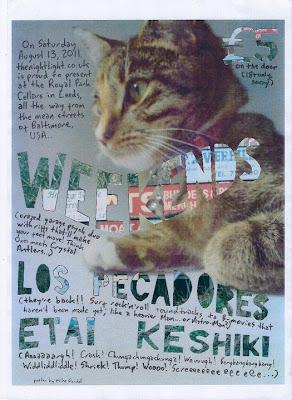 On Saturday
August 13, 2011,
thenightlight.co.uk
is proud to present
at the Royal Park
Cellars in Leeds,
all the way from
the mean streets
of Baltimore,
USA...
£5
on the door
(18+ only,
sorry!)
WEEKENDS
(crazed garage psych duo
with riffs that'll make
your feet move! Think
Crystal
Antlers...)
LOS PECADORES
(they're back!! Surf rock'n'roll soundtracks to B-movies that
haven't been made yet, like a heavier Man... or Astro-Man?)
ETAI KESHIKI
(Aaaaaaargh! Crash! Chungachungachunga! Waauugh!
Widdliddliddle! Shriek! Thump! Woooo! Screeeeeeeeeeee...)
poster by Mike